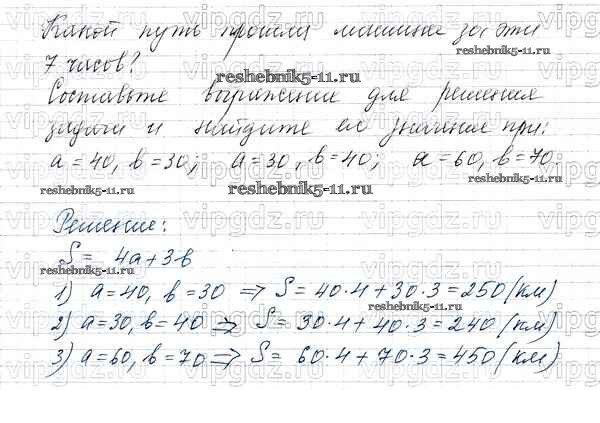 Какой путь прошла машина за эти
7 часов?
reshebnik5-11.ru
Составьте выражение для решения
задачи и найдите его значение при:
a = 40, b = 30; a = 30, b = 40; a = 60, b = 70.
reshebnik5-11.ru reshebnik5-11.ru reshebnik5-11.ru
Решение:
S = 4a + 3b
reshebnik5-11.ru
1) a = 40, b = 30 => S = 40·4 + 30·3 = 250 (км)
reshebnik5-11.ru
2) a = 30, b = 40 => S = 30·4 + 40·3 = 240 (км)
3) a = 60, b = 70 => S = 60·4 + 70·3 = 450 (км)
reshebnik5-11.ru
vipgdz.ru